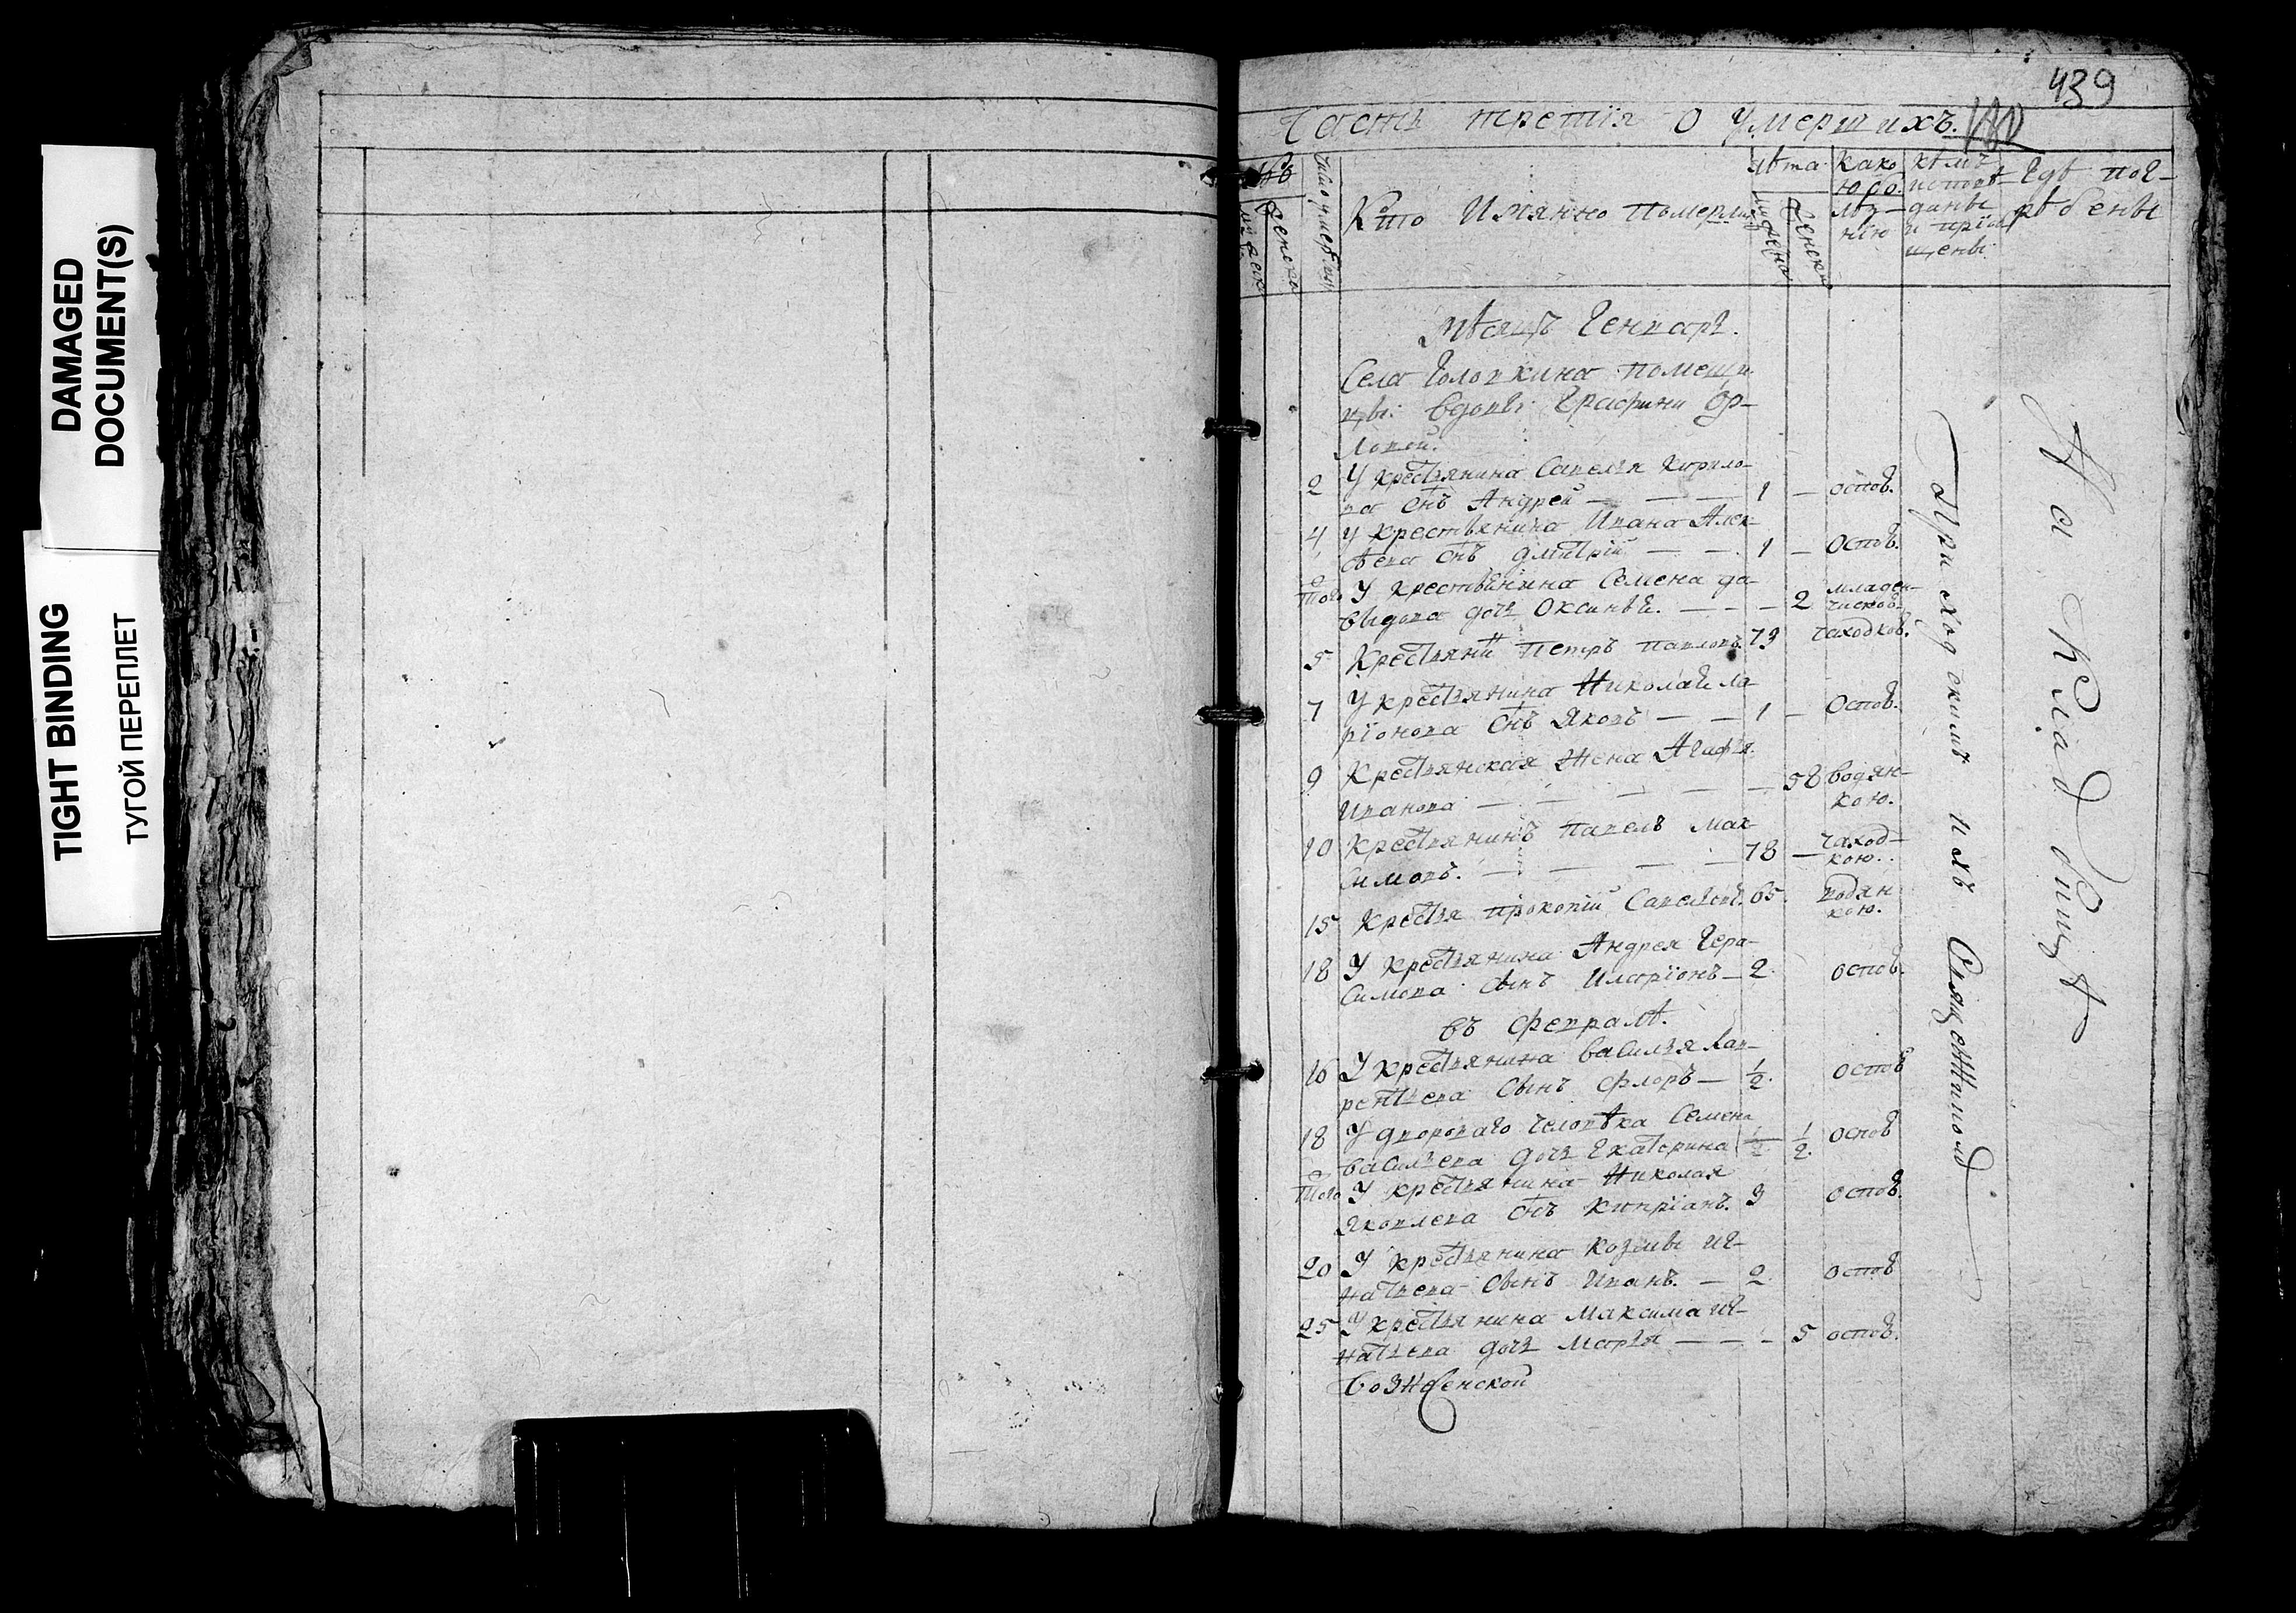 DAMAGED
DOCUMENT(S)
TIGHT BINDING
ТУГОЙ ПЕРЕПЛЕТ
439
Часть третїя о умершихъ.
№
мужеск
женска
Число умерш
Кто имянно померли
лѣта
мужеска
женска
Како
ю бо
лѣз-
нїю
кѣмъ
исповѣ-
даны
и прїоб
щены
Гдѣ пог-
рѣбены
Мѣсяцъ Генварь.
Села Головкина помещи
цы вдовы Графини Ор-
ловой.
2 У крестьянина Савелья Кирило-
ва снъ Андрей — — — 1 — оспою.
4 У крестьянина Ивана Алек-
ѣева снъ Дмитрїй — — 1 — Оспою.
Того У крестьянина Семена Да-
выдова дочь Оксинья. — — — 2 младен-
ческою.
5 Крестьянинъ Петръ Павловъ 73 чахоткою.
7 У крестьянина Николая Ла-
рїонова снъ Яковъ — — 1 — Оспою.
9 Крестьянская жена Агафья
Иванова — — — — — 58 водян-
кою.
10 Крестьянинъ Павелъ Мак-
симовъ. — — — — 78 — чахот-
кою.
15 Крестья Прокопїй Савельевъ. 65. водян
кою.
18 У крестьянина Андрея Гера-
симова сынъ Иларїонъ — 2. оспою.
въ Февралѣ.
16 У крестьянина Василья Лав-
рентьева сынъ Флоръ — 1/2. оспою
18 У двороваго человѣка Семена
Васильева дочь Екатерина 1/2 1/2. оспою
Того У крестьянина Николая
Яковлева снъ Кипрїанъ. 3 оспою.
20 У крестьянина Козмы Иг-
натьева сынъ Иванъ. — 2. оспою
25 У крестьянина Максима Иг-
натьева дочь Марья — — — 5 оспою.
Вознесенской
Приходскимъ ихъ Священникомъ
На Кладбищѣ